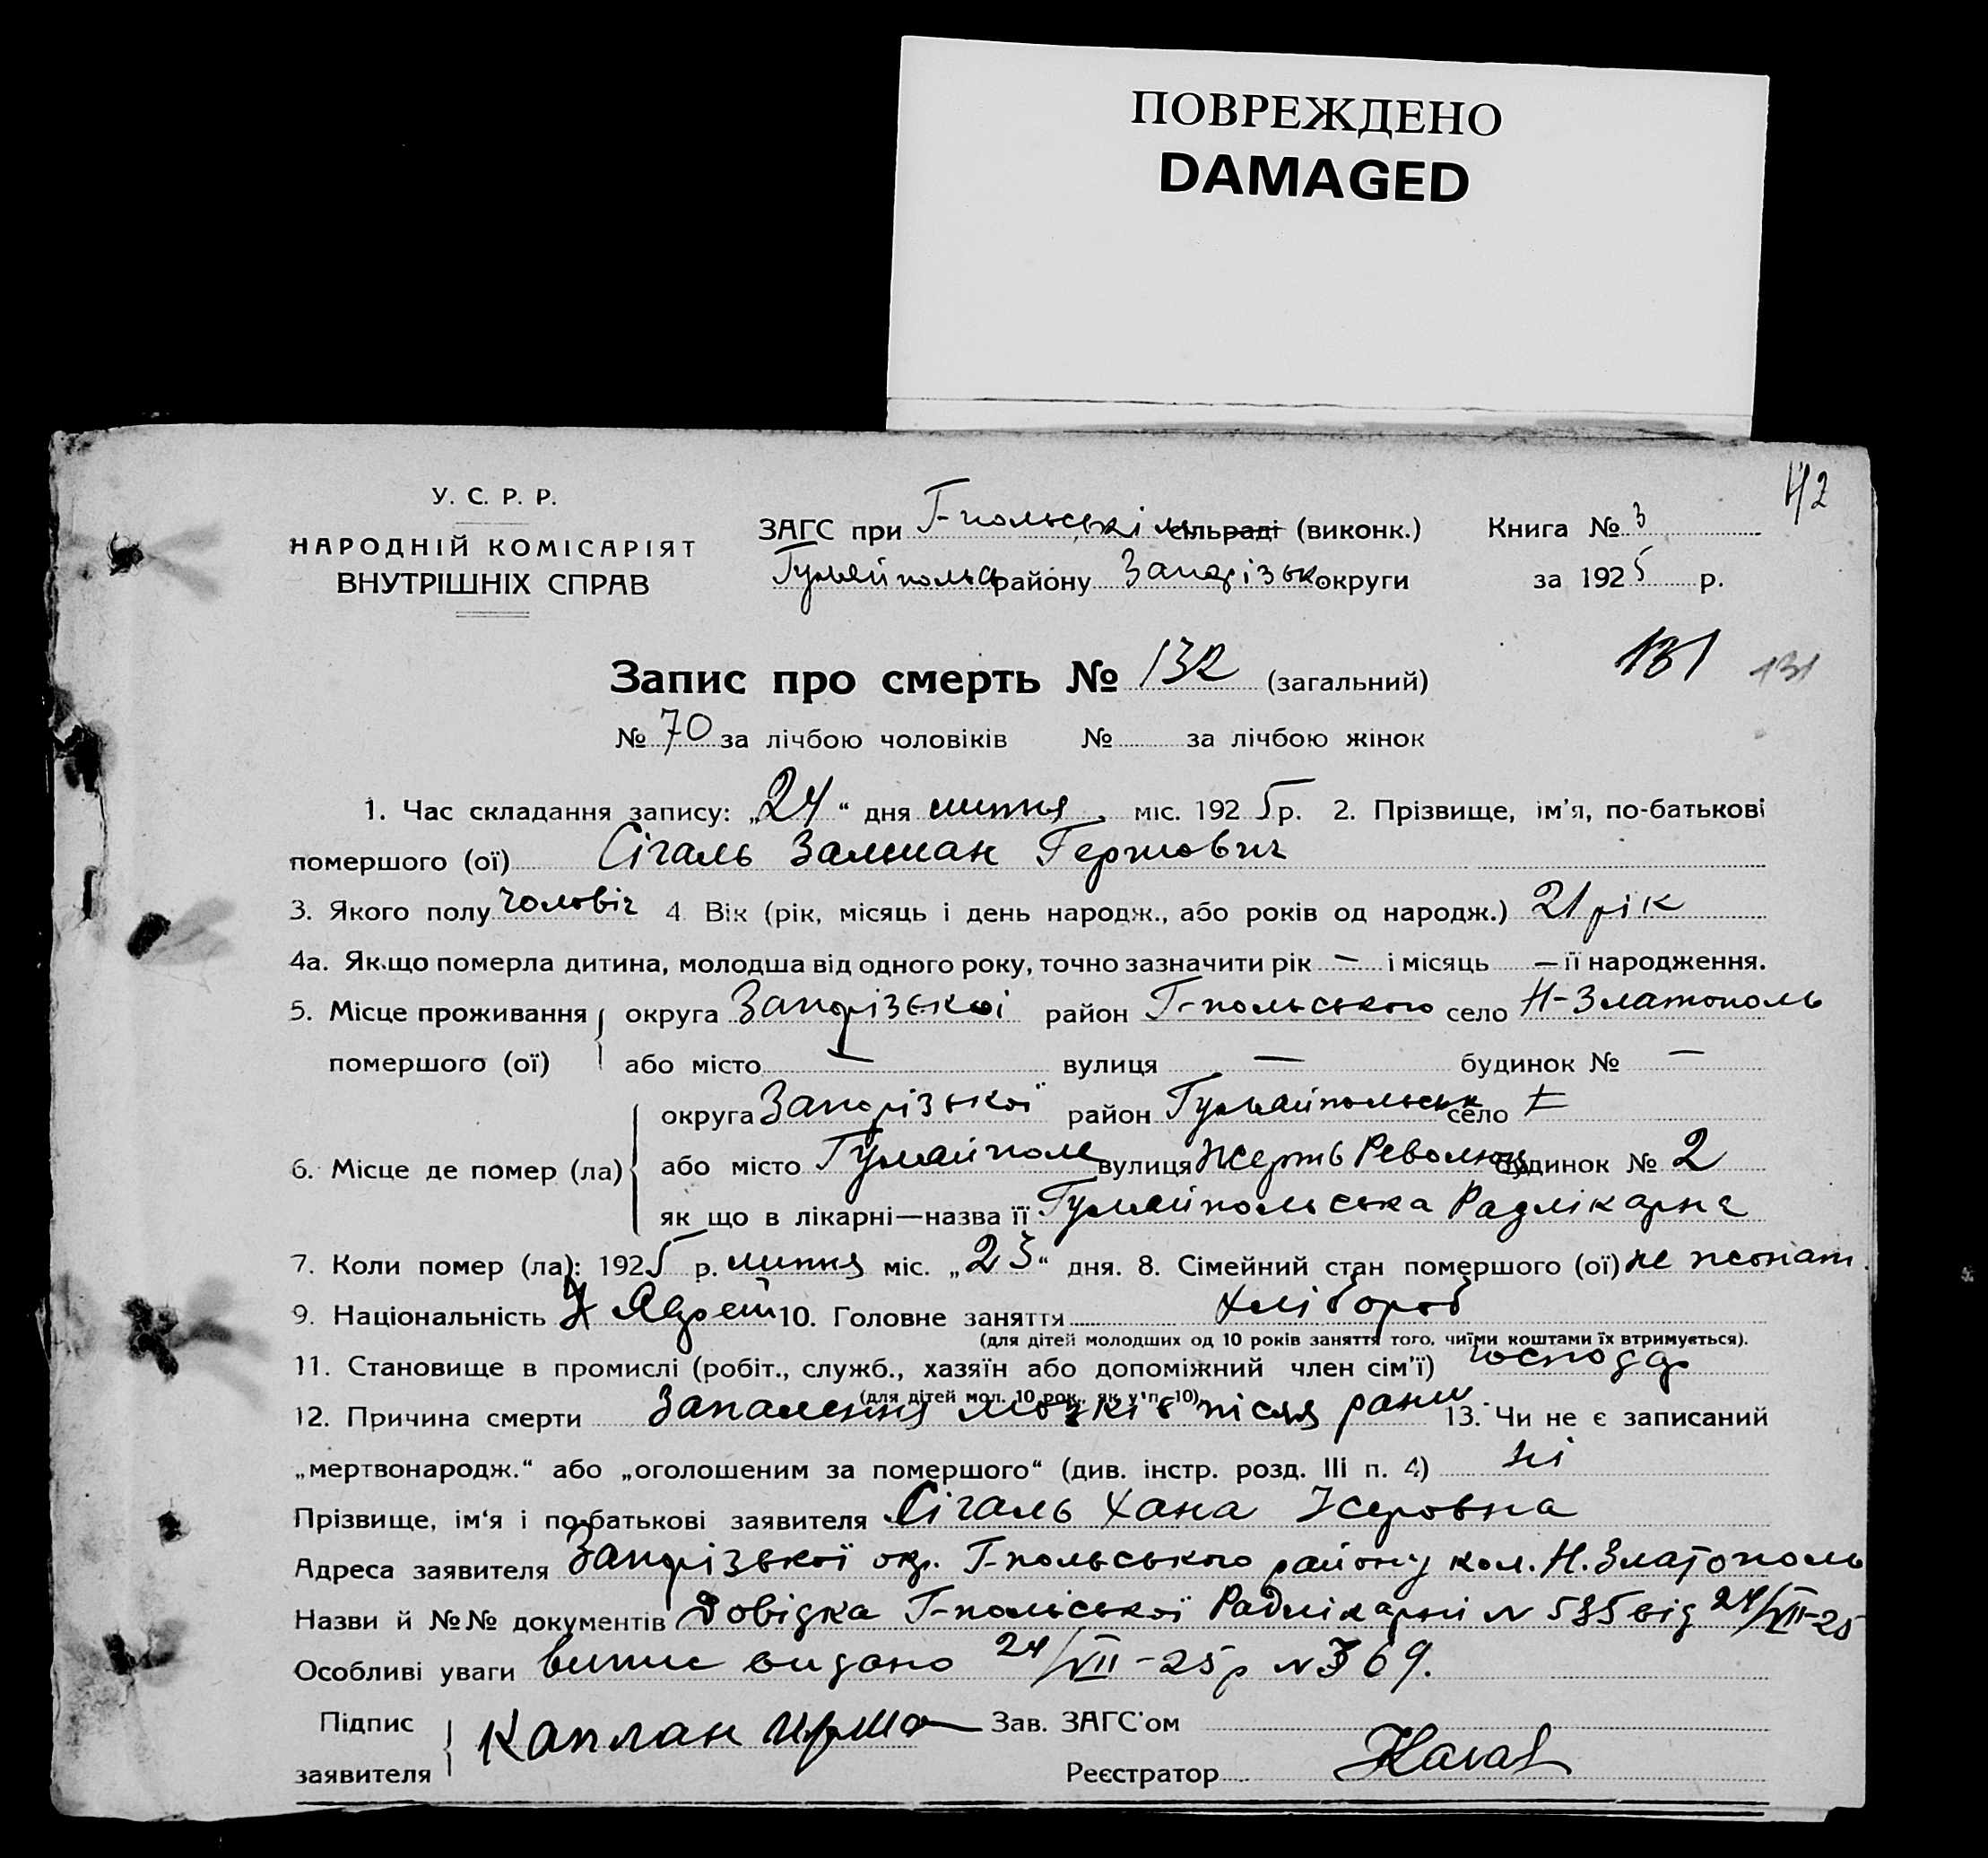 ПОВРЕЖДЕНО
DAMAGED
У. С. Р. Р.
НАРОДНІЙ КОМІСАРІЯТ
ВНУТРІШНІХ СПРАВ
ЗАГС при Г-польські сільраді (виконк.) Книга № 3
Гуляйпольс району Запорізьк округи за 1925 р.
42
Запис про смерть № 132 (загальний)
131 131
№ 70 за лічбою чоловіків № за лічбою жінок
1. Час складання запису: „24“ дня липня міс. 1925 р. 2. Прізвище, ім'я, по-батькові
помершого (ої) Сігаль Залман Гершович
3. Якого полу чоловіч 4 Вік (рік, місяць і день народж., або років од народж.) 21 рік
4а. Якщо померла дитина, молодша від одного року, точно зазначити рік — і місяць — її народження.
5. Місце проживання округа Запорізької район Г-польського село Н-Златополь
помершого (ої) або місто — вулиця — будинок № —
округа Запорізької район Гуляйпольськ село
6. Місце де помер (ла) або місто Гуляйполе вулиця Жертв Революц будинок № 2
як що в лікарні—назва її Гуляйпольська Радлікарня
7. Коли помер (ла): 1925 р. липня міс. „23“ дня. 8. Сімейний стан помершого (ої) не жонат.
9. Національність Яврей 10. Головне заняття хлібороб
(для дітей молодших од 10 років заняття того, чиїми коштами їх втримується).
11. Становище в промислі (робіт., служб., хазяїн або допоміжний член сім'ї) господар
(для дітей мол. 10 рок. як у п. 10)
12. Причина смерти Запалення мозків після рани 13. Чи не є записаний
„мертвонародж.“ або „оголошеним за помершого“ (див. інстр. розд. III п. 4) ні
Прізвище, ім'я і по-батькові заявителя Сігаль Хана
Адреса заявителя Запорізької окр. Г-польського району кол. Н. Златополь
Назви й №№ документів Довідка Г-польської Радлікарні № 535 від 24/VII-25
Особливі уваги витис видано 24/VII-25р № 369.
Підпис
заявителя Каплан Зав. ЗАГС'ом
Реєстратор